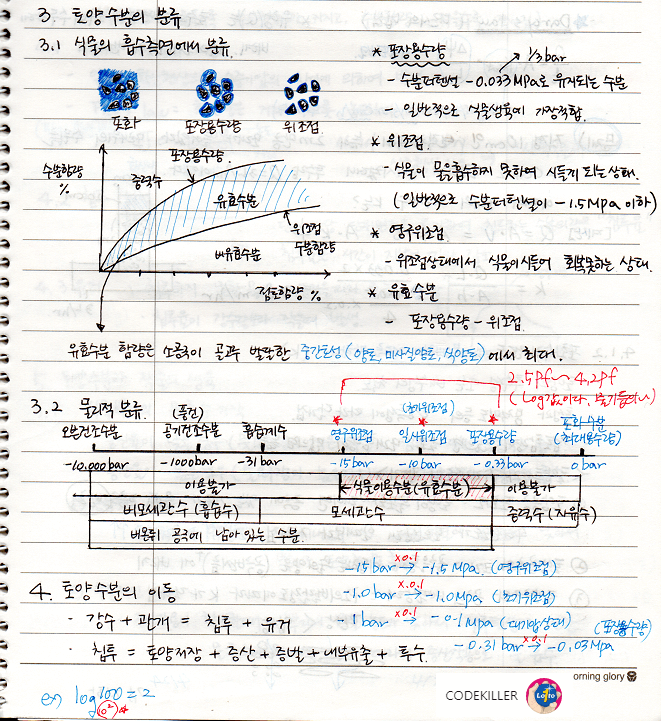 3. 토양수분의 분류
3.1 식물의 흡수측면에서 분류.
포화 포장용수량 위조점
수분함량 %
중력수 포장용수량
유효수분
위조점 수분함량
비유효수분
점토함량 %
* 포장용수량 1/3bar
- 수분터텐셜 -0.033MPa로 유지되는 수분
- 일반적으로 식물생육에 가장적합.
* 위조점.
- 식물이 물을흡수하지 못하여 시들게 되는 상태.
(일반적으로 수분터텐셜이 -1.5Mpa 이하)
* 영구위조점
- 위조점상태에서 식물이 시들어 회복못하는 상태.
* 유효수분
- 포장용수량 - 위조점.
유효수분 함량은 소공극이 골고루 발달한 중간토성(양토, 미사질양토, 식양토)에서 최대.
2.5Pf ~ 4.2pf
3.2 물리적 분류.
(풍건) (초기위조점)
오븐건조수분 공기건조수분 흡습계수 영구위조점 일시위조점 포장용수량 포화수분 (최대용수량)
-10.000bar -1000bar -31bar -15bar -10bar -0.33bar 0bar
이용불가 식물이용수분(유효수분) 이용불가
비모세관수(흡습수) 모세관수 중력수(자유수)
비온뒤 공극에 남아 있는 수분.
-15bar ×0.1 → -1.5Mpa. (영구위조점)
4. 토양수분의 이동
-1.0bar ×0.1 → -1.0Mpa (초기위조점)
· 강수 + 관개 = 침투 + 유거
-1bar ×0.1 → -0.1Mpa (대기압상태)
(포장용수량)
· 침투 = 토양저장 + 증산 + 증발 + 내부유출 + 투수.
-0.31bar ×0.1 → -0.03Mpa
orning glory
ex) log100 = 2
10²
CODEKILLER Lotto